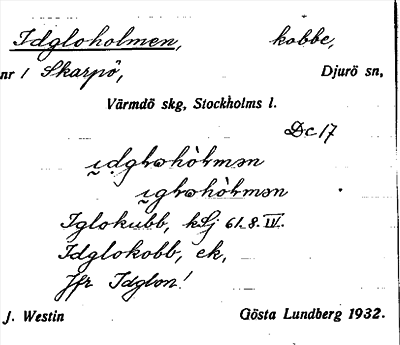 Idgloholmen, kobbe,
nr 1 Skarpö, Djurö sn,
Värmdö skg, Stockholms l.
Dc 17
Iglokubb, kSj 61.8.IV.
Idglokobb, ek,
Jfr Idglon!
J. Westin Gösta Lundberg 1932.